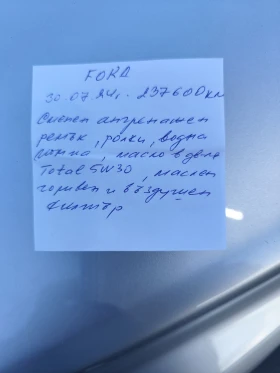 FORD
30.07.24г. 237600км
Сменен ангренажен
ремък, ролки, водна
помпа, масло в двг.
Total 5W30, маслен
горивен и въздушен
филтър